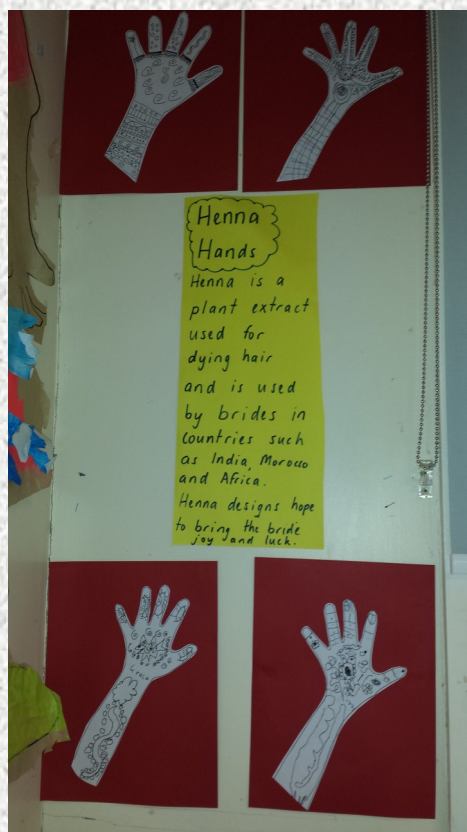 Henna
Hands
Henna is a
plant extract
used for
dying hair
and is used
by brides in
countries such
as India, Morocco
and Africa.
Henna designs hope
to bring the bride
joy and luck.